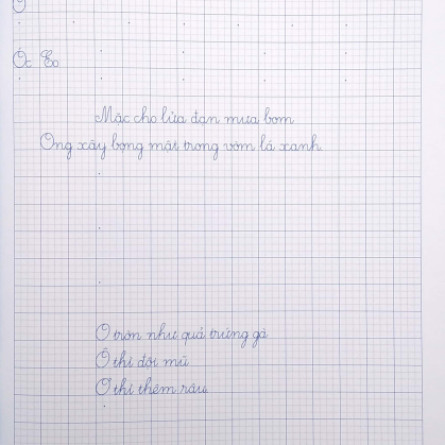 O
Óc Eo
Mặc cho lửa đạn mưa bom
Ong xây bọng mật trong vòm lá xanh
O tròn như quả trứng gà
Ô thì đội mũ
Ơ thì thêm râu